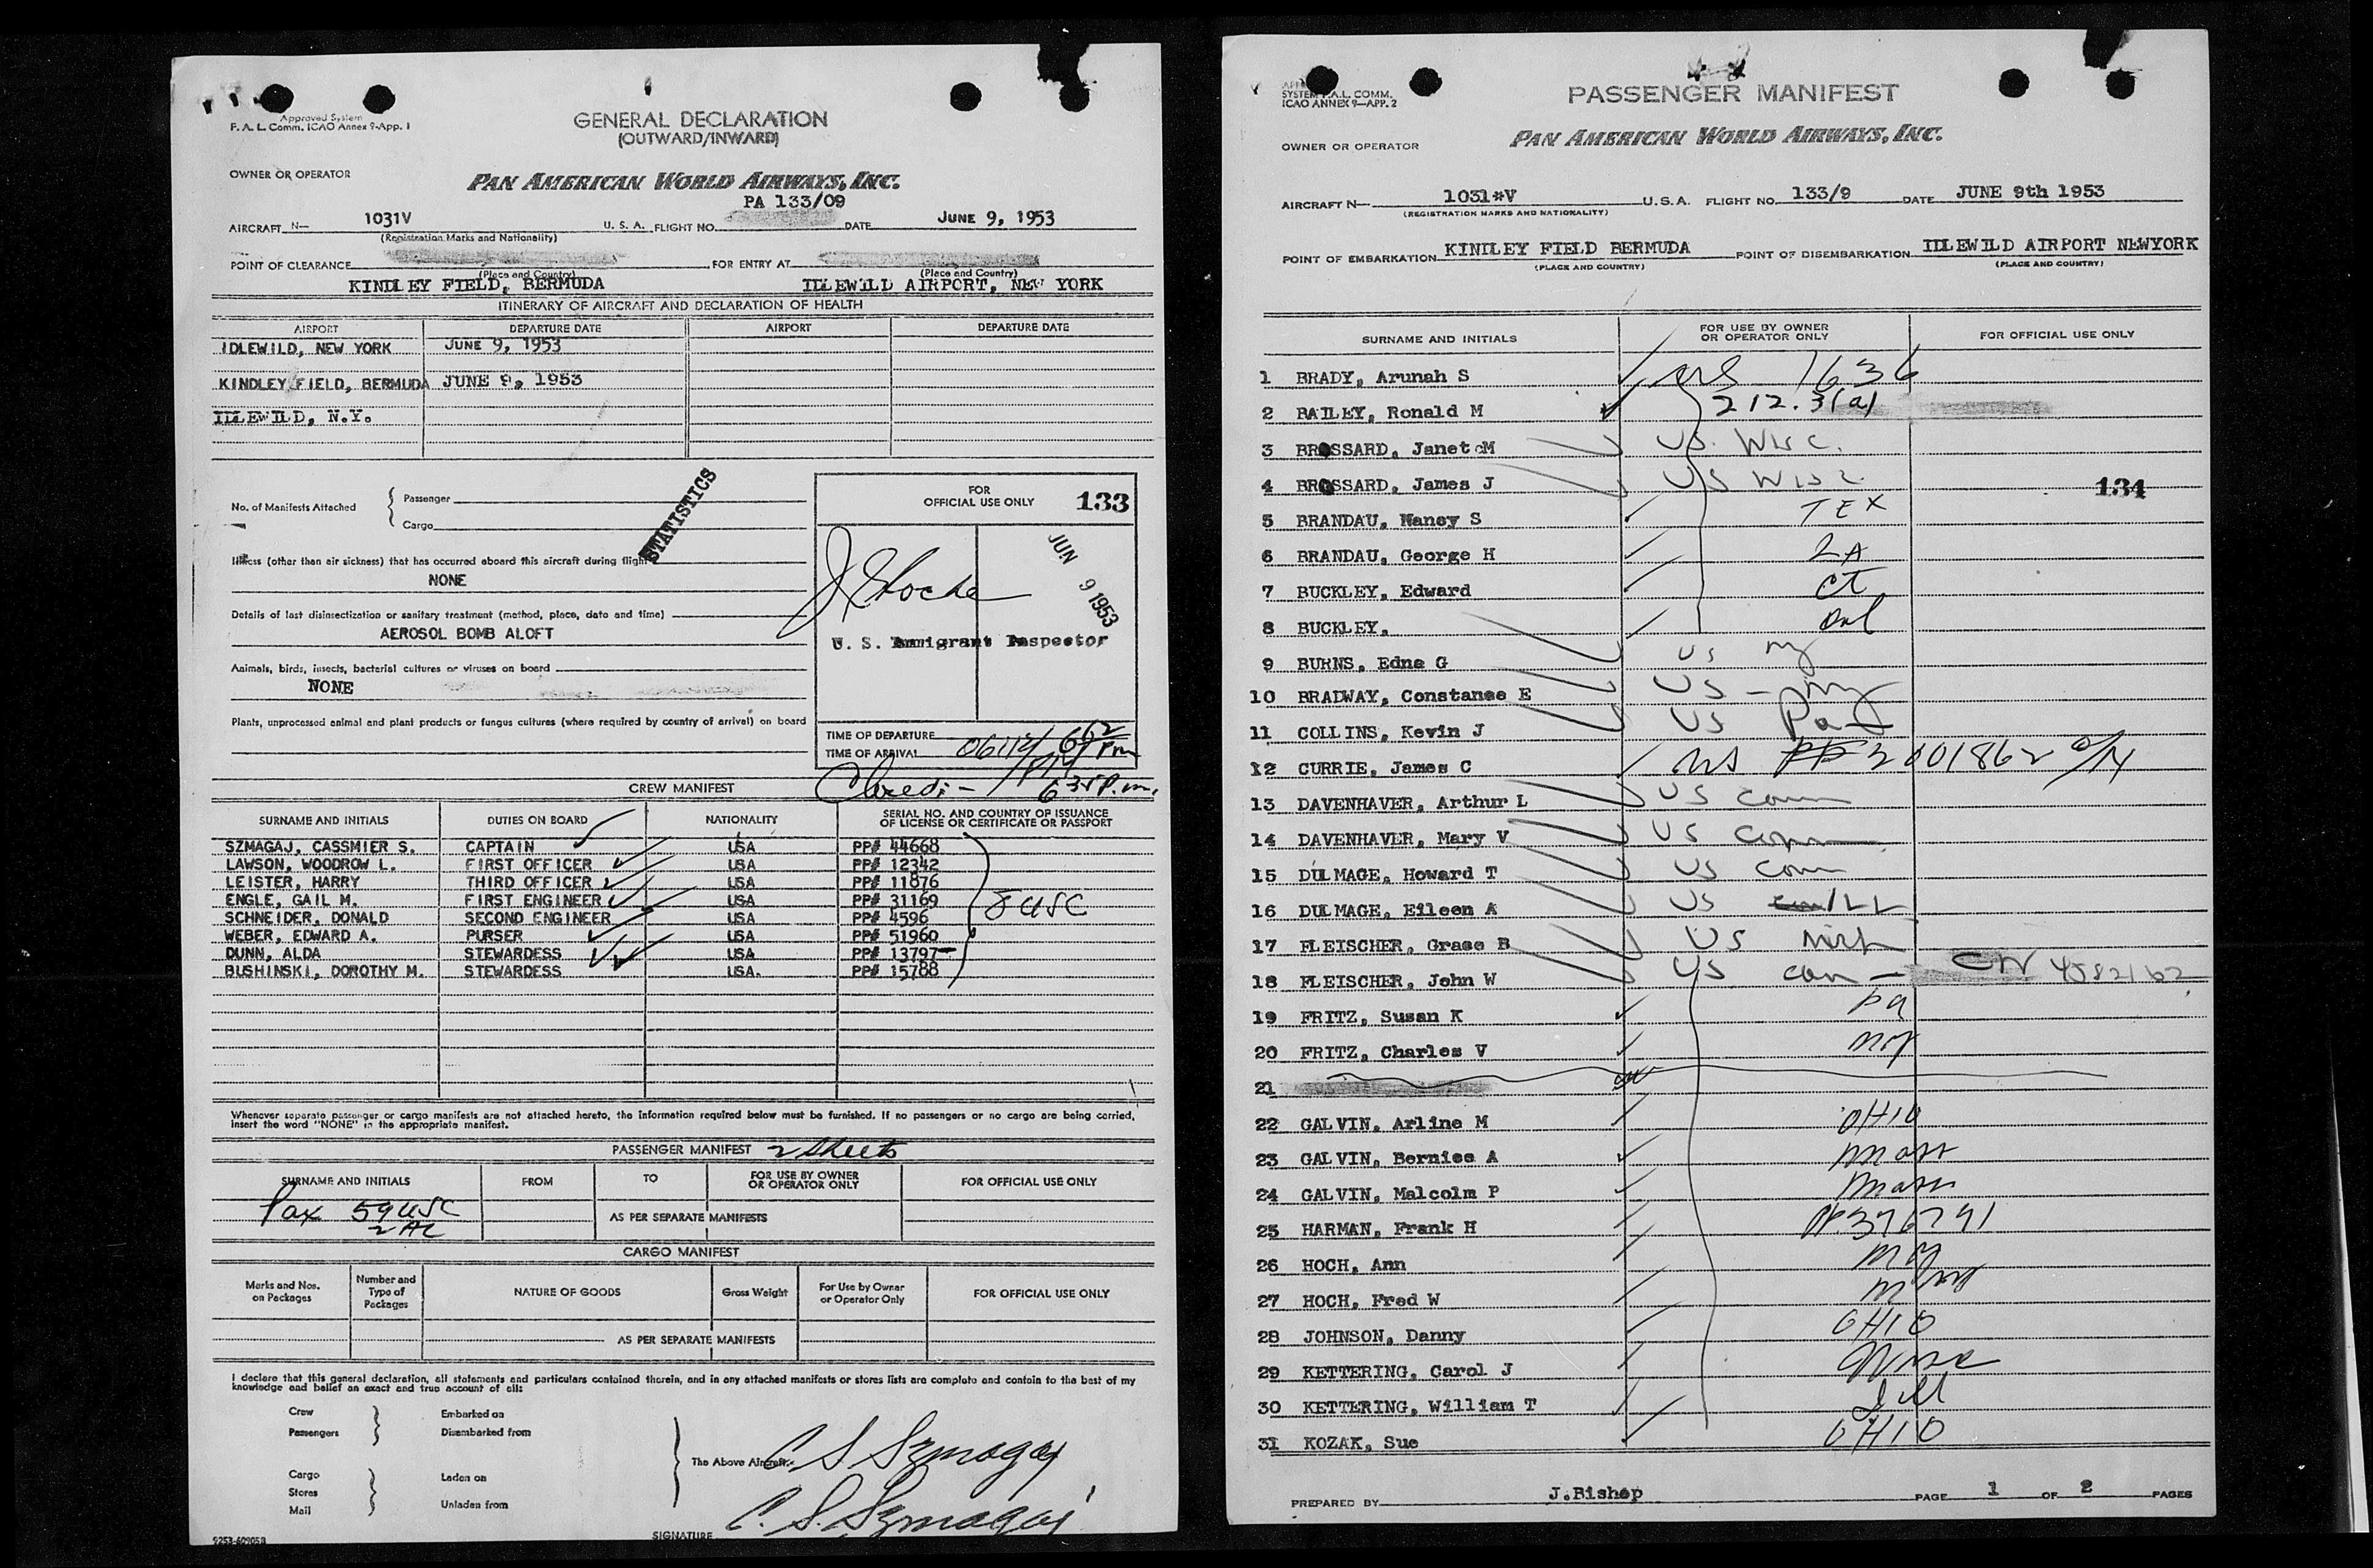 Approved System
F. A. L. Comm. ICAO Annex 9-App. 1
GENERAL DECLARATION
(OUTWARD/INWARD)
OWNER OR OPERATOR
PAN AMERICAN WORLD AIRWAYS, INC.
PA 133/09
AIRCRAFT N— 1031V U. S. A. FLIGHT NO. DATE JUNE 9, 1953
(Registration Marks and Nationality)
POINT OF CLEARANCE FOR ENTRY AT
(Place and Country) (Place and Country)
KINDLEY FIELD, BERMUDA IDLEWILD AIRPORT, NEW YORK
ITINERARY OF AIRCRAFT AND DECLARATION OF HEALTH
AIRPORT DEPARTURE DATE AIRPORT DEPARTURE DATE
IDLEWILD, NEW YORK JUNE 9, 1953
KINDLEY FIELD, BERMUDA JUNE 9, 1953
IDLEWILD, N.Y.
No. of Manifests Attached
Passenger
Cargo
STATISTICS
Illness (other than air sickness) that has occurred aboard this aircraft during flight
NONE
Details of last disinsectization or sanitary treatment (method, place, date and time)
AEROSOL BOMB ALOFT
Animals, birds, insects, bacterial cultures or viruses on board
NONE
Plants, unprocessed animal and plant products or fungus cultures (where required by country of arrival) on board
FOR
OFFICIAL USE ONLY 133
JUN 9 1953
U. S. Immigrant Inspector
TIME OF DEPARTURE
TIME OF ARRIVAL
Cleared - 6 35 P.m.
CREW MANIFEST
SURNAME AND INITIALS DUTIES ON BOARD NATIONALITY SERIAL NO. AND COUNTRY OF ISSUANCE
OF LICENSE OR CERTIFICATE OR PASSPORT
SZMAGAJ, CASSMIER S. CAPTAIN USA PP# 44668
LAWSON, WOODROW L. FIRST OFFICER USA PP# 12342
LEISTER, HARRY THIRD OFFICER USA PP# 11876
ENGLE, GAIL M. FIRST ENGINEER USA PP# 31169
SCHNEIDER, DONALD SECOND ENGINEER USA PP# 4596
WEBER, EDWARD A. PURSER USA PP# 51960
DUNN, ALDA STEWARDESS USA PP# 13797
BUSHINSKI, DOROTHY M. STEWARDESS USA. PP# 15788
8 USC
Whenever separate passenger or cargo manifests are not attached hereto, the information required below must be furnished. If no passengers or no cargo are being carried,
insert the word "NONE" in the appropriate manifest.
PASSENGER MANIFEST 2 sheets
SURNAME AND INITIALS FROM TO FOR USE BY OWNER
OR OPERATOR ONLY FOR OFFICIAL USE ONLY
Pax 59 USC
2 AL
AS PER SEPARATE MANIFESTS
CARGO MANIFEST
Marks and Nos.
on Packages Number and
Type of
Packages NATURE OF GOODS Gross Weight For Use by Owner
or Operator Only FOR OFFICIAL USE ONLY
AS PER SEPARATE MANIFESTS
I declare that this general declaration, all statements and particulars contained therein, and in any attached manifests or stores lists are complete and contain to the best of my
knowledge and belief an exact and true account of all:
Crew Embarked on
Passengers Disembarked from
The Above Aircraft. C. S Szmagaj
Cargo Laden on
Stores
Mail Unladen from
SIGNATURE C. S. Szmagaj
SYSTEM F.A.L. COMM.
ICAO ANNEX 9—APP. 2
PASSENGER MANIFEST
PAN AMERICAN WORLD AIRWAYS, INC.
OWNER OR OPERATOR
AIRCRAFT N— 1031*V U.S.A. FLIGHT NO. 133/9 DATE JUNE 9th 1953
(REGISTRATION MARKS AND NATIONALITY)
POINT OF EMBARKATION KINDLEY FIELD BERMUDA POINT OF DISEMBARKATION IDLEWILD AIRPORT NEWYORK
(PLACE AND COUNTRY) (PLACE AND COUNTRY)
SURNAME AND INITIALS FOR USE BY OWNER
OR OPERATOR ONLY FOR OFFICIAL USE ONLY
1 BRADY, Arunah S 1636
2 BAILEY, Ronald M 212.3(a)
3 BROSSARD, Janet M US. Wisc.
4 BROSSARD, James J US Wisc
134
5 BRANDAU, Nancy S TEX
6 BRANDAU, George H LA
7 BUCKLEY, Edward Ct
8 BUCKLEY,
9 BURNS, Edna G US ny
10 BRADWAY, Constanse E US - ny
11 COLLINS, Kevin J US Pa
12 CURRIE, James C
13 DAVENHAVER, Arthur L US Conn
14 DAVENHAVER, Mary V US Conn
15 DULMAGE, Howard T US Conn
16 DULMAGE, Eileen A US ILL
17 FLEISCHER, Grase B US Mich
18 FLEISCHER, John W US can - CN 4582162
19 FRITZ, Susan K Pa
20 FRITZ, Charles V
21
22 GALVIN, Arline M OHIO
23 GALVIN, Bernise A Mass
24 GALVIN, Malcolm P Mass
25 HARMAN, Frank H PP. 376791
26 HOCH, Ann
27 HOCH, Fred W
28 JOHNSON, Danny OHIO
29 KETTERING, Carol J
30 KETTERING, William T Ill
31 KOZAK, Sue OHIO
PREPARED BY J.Bishop PAGE 1 OF 2 PAGES